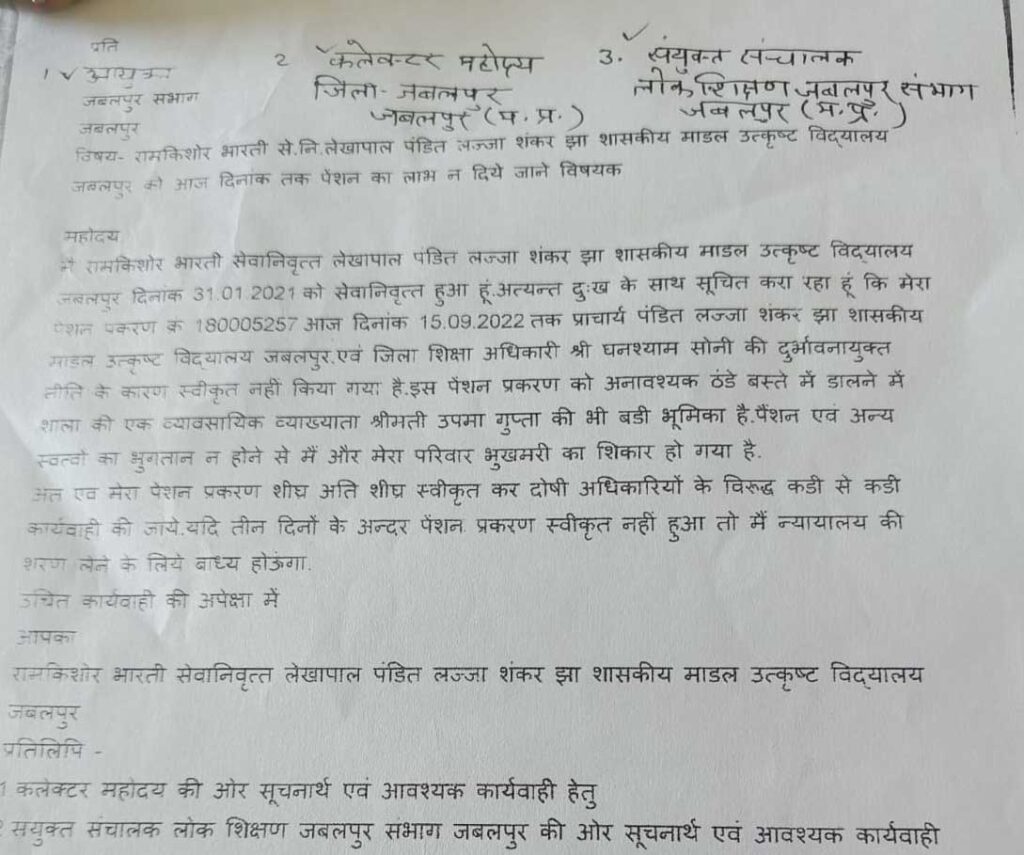 प्रति
1 ✓ आयुक्त
जबलपुर सभाग
जबलपुर
2 ✓ कलेक्टर महोदय
जिला- जबलपुर
जबलपुर (म. प्र.)
3. ✓ संयुक्त संचालक
लोक शिक्षण जबलपुर संभाग
जबलपुर (म. प्र.)
विषय- रामकिशोर भारती से.नि.लेखापाल पंडित लज्जा शंकर झा शासकीय माडल उत्कृष्ट विद्यालय
जबलपुर को आज दिनांक तक पेंशन का लाभ न दिये जाने विषयक
महोदय
मै रामकिशोर भारती सेवानिवृत्त लेखापाल पंडित लज्जा शंकर झा शासकीय माडल उत्कृष्ट विद्यालय
जबलपुर दिनांक 31.01.2021 को सेवानिवृत्त हुआ हूं.अत्यन्त दुःख के साथ सूचित करा रहा हूं कि मेरा
पेंशन प्रकरण क्रं 180005257 आज दिनांक 15.09.2022 तक प्राचार्य पंडित लज्जा शंकर झा शासकीय
माडल उत्कृष्ट विद्यालय जबलपुर.एवं जिला शिक्षा अधिकारी श्री घनश्याम सोनी की दुर्भावनायुक्त
नीति के कारण स्वीकृत नहीं किया गया है.इस पेंशन प्रकरण को अनावश्यक ठंडे बस्ते में डालने में
शाला की एक व्यावसायिक व्याख्याता श्रीमती उपमा गुप्ता की भी बडी भूमिका है.पैंशन एवं अन्य
स्वत्वो का भुगतान न होने से मैं और मेरा परिवार भुखमरी का शिकार हो गया है.
अत एव मेरा पेशन प्रकरण शीघ्र अति शीघ्र स्वीकृत कर दोषी अधिकारियों के विरूद्ध कडी से कडी
कार्यवाही की जाये.यदि तीन दिनों के अन्दर पेंशन प्रकरण स्वीकृत नहीं हुआ तो मैं न्यायालय की
शरण लेने के लिये बाध्य होऊंगा.
उचित कार्यवाही की अपेक्षा में
आपका
रामकिशोर भारती सेवानिवृत्त लेखापाल पंडित लज्जा शंकर झा शासकीय माडल उत्कृष्ट विद्यालय
जबलपुर
प्रतिलिपि -
1 कलेक्टर महोदय की ओर सूचनार्थ एवं आवश्यक कार्यवाही हेतु
2 सयुक्त संचालक लोक शिक्षण जबलपुर संभाग जबलपुर की ओर सूचनार्थ एवं आवश्यक कार्यवाही